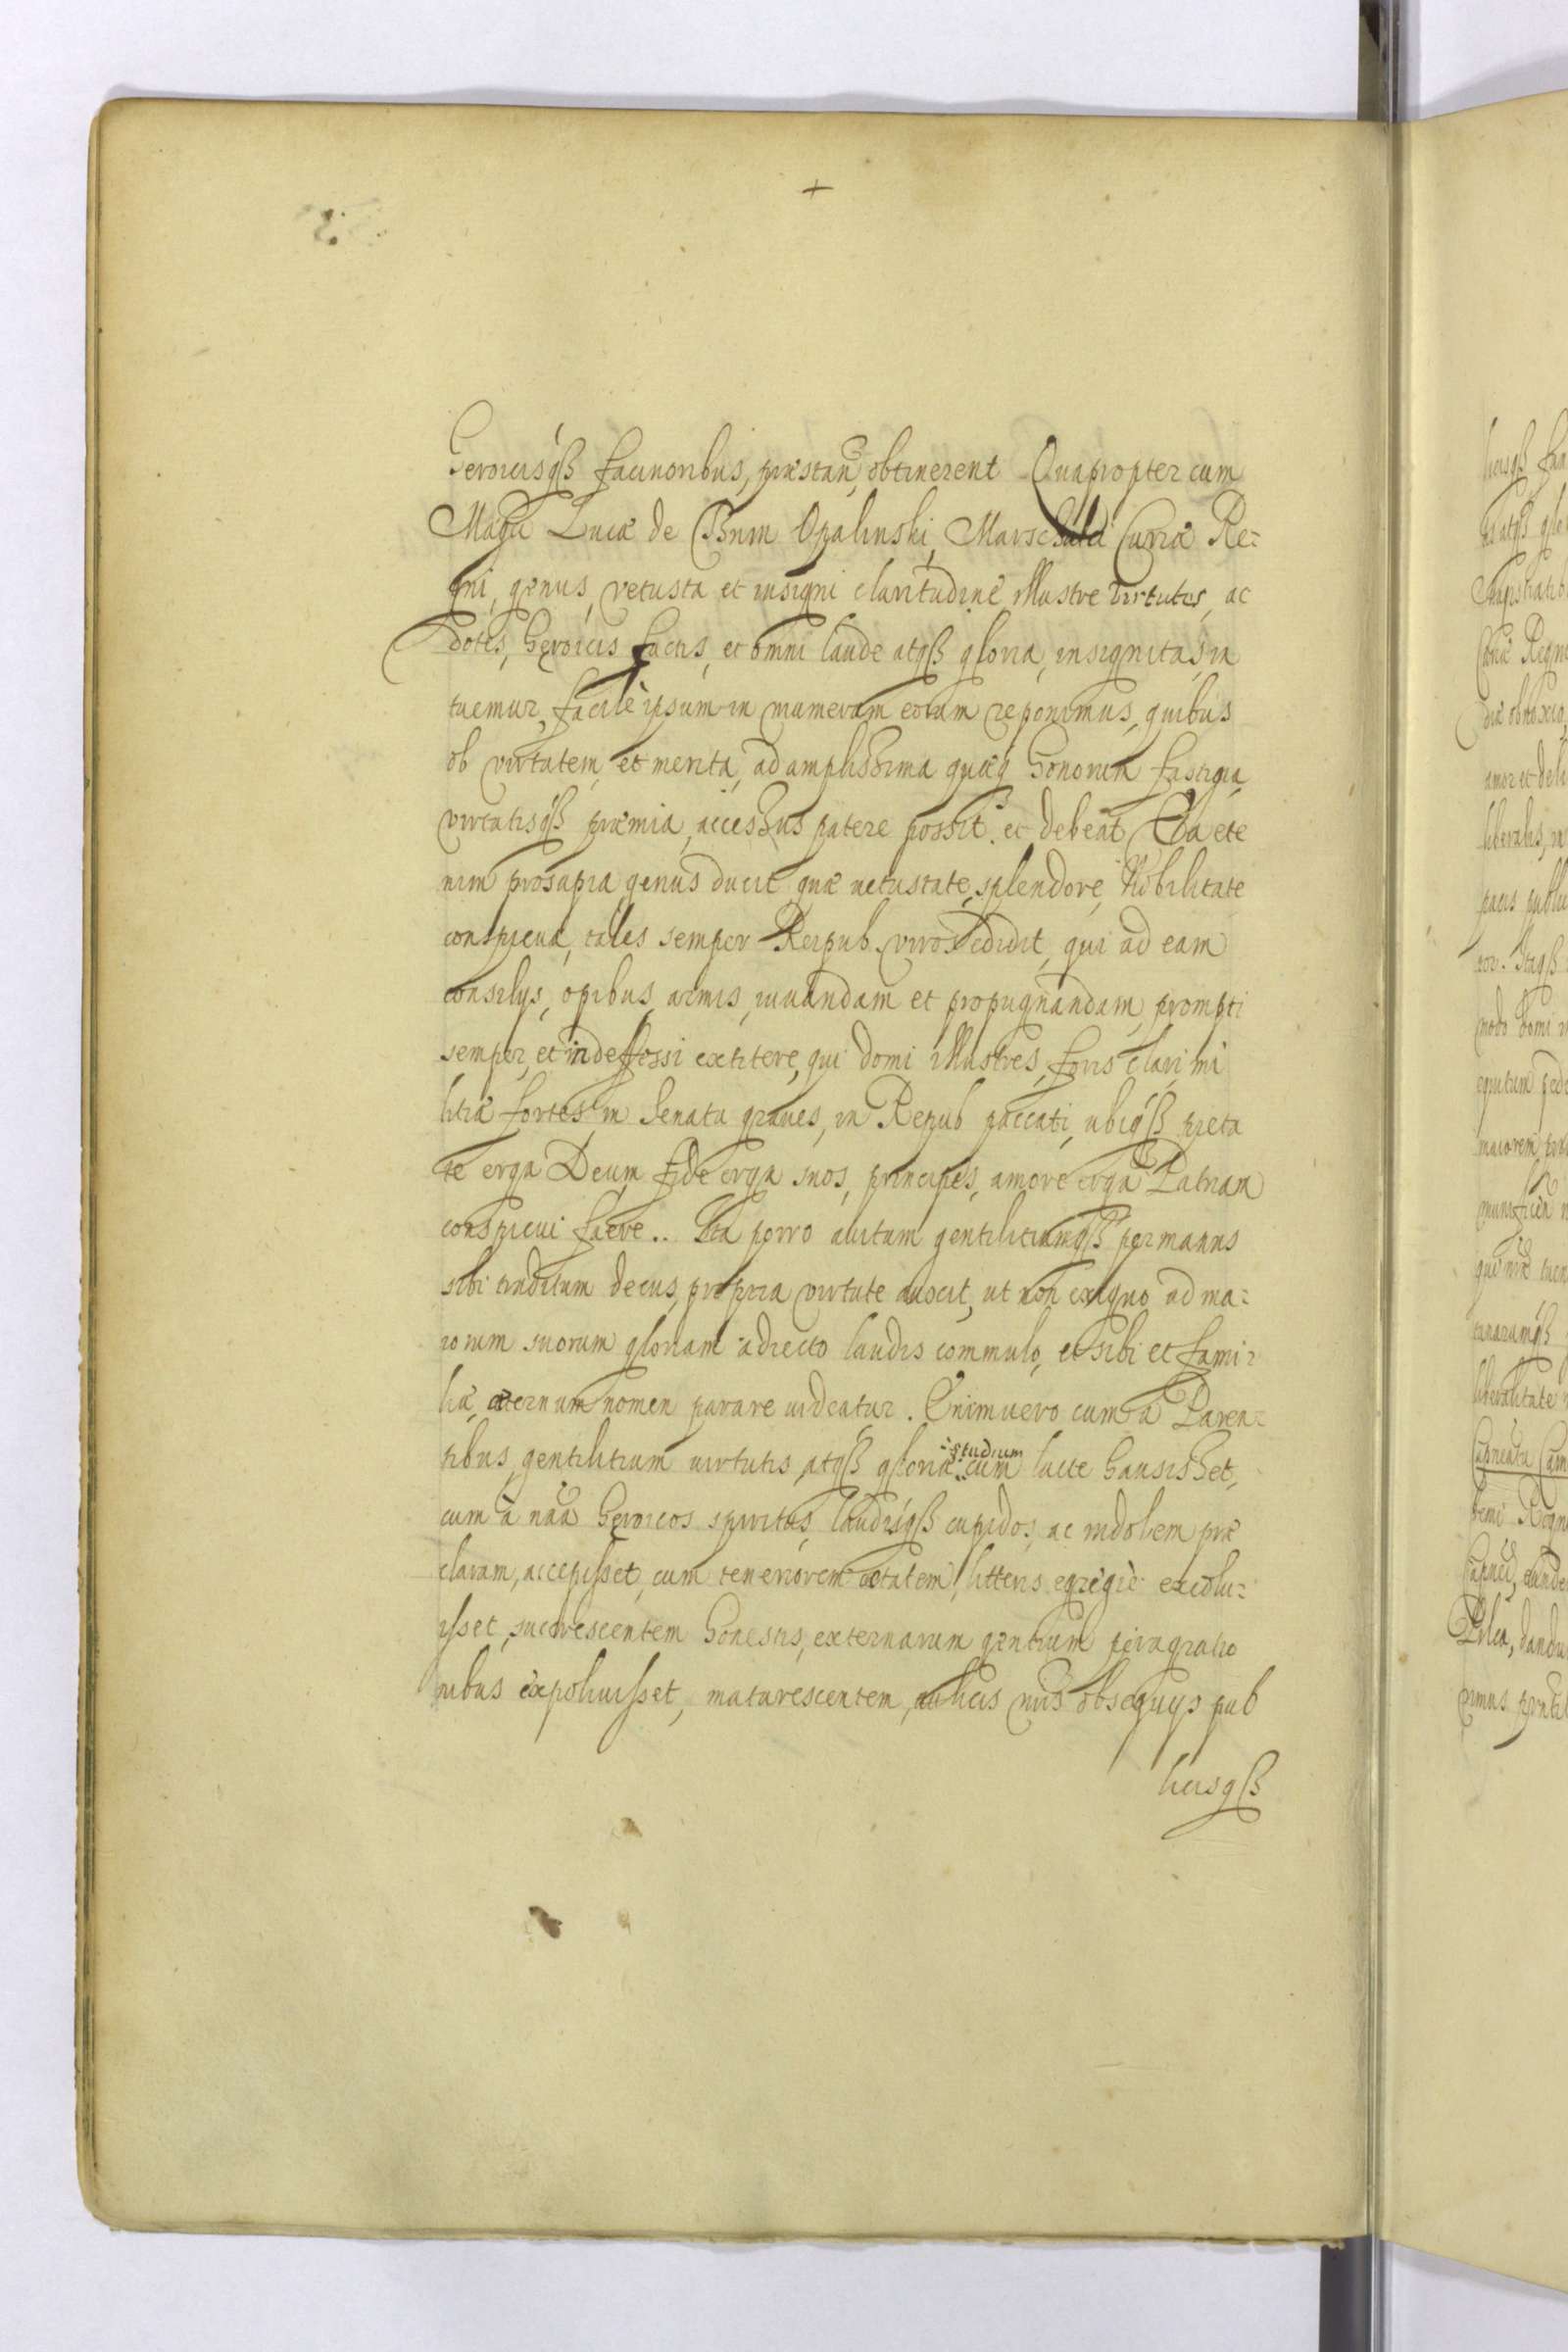 +
Heroicisqß facinoribus, præstañ, obtinerent Quapropter cum
Magci Lucæ de Bnin Opalinski, Marschalci Curiæ Re=
gni, genus, vetusta et insigni claritudine illustre virtutes, ac
dotes, heroicis factis, et omni laude atqß gloria, insignitas in
tuemur, facilè ipsum in numerum eorum reponimus, quibus
ob virtutem, et merita, ad amplissima quæq honorum fastigia,
virtutisqß præmia, accessus patere possit. et debeat Ea ete
nim prosapia genus ducit quæ vetustate, splendore, Nobilitate
conspicua, tales semper Reipub. viros edidit, qui ad eam
consilys, opibus, armis, iuuandam et propugnandam, prompti
semper, et indeffessi extitere, qui domi illustres, foris clari, mi
litiæ fortes, in Senatu graues, in Repub paccati, ubiqß pieta
te erga Deum, fide erga suos, principes, amore erga Patriam
conspicui fuere.. Ita porro auitum gentilitiumqß per manus
sibi traditum decus, propria virtute auxit, ut non exiguo ad ma=
iorum suorum gloriam adiecto laudis commulo, et sibi et fami=
liæ, æternum nomen parare uideatur. Enimuero cum à Paren=
tibus, gentilitium uirtutis, atqß gloriæ studium cum lacte hausisset,
cum à nãa heroicos spiritus, laudisqß cupidos, ac indolem præ
claram, accepisset, cum teneriorem ætatem, litteris egregiè excolu=
isset, succrescentem honestis, externarum gentium peragratio
nibus expoliuisset, maturescentem, aulicis nris obsequys pub
licisqß